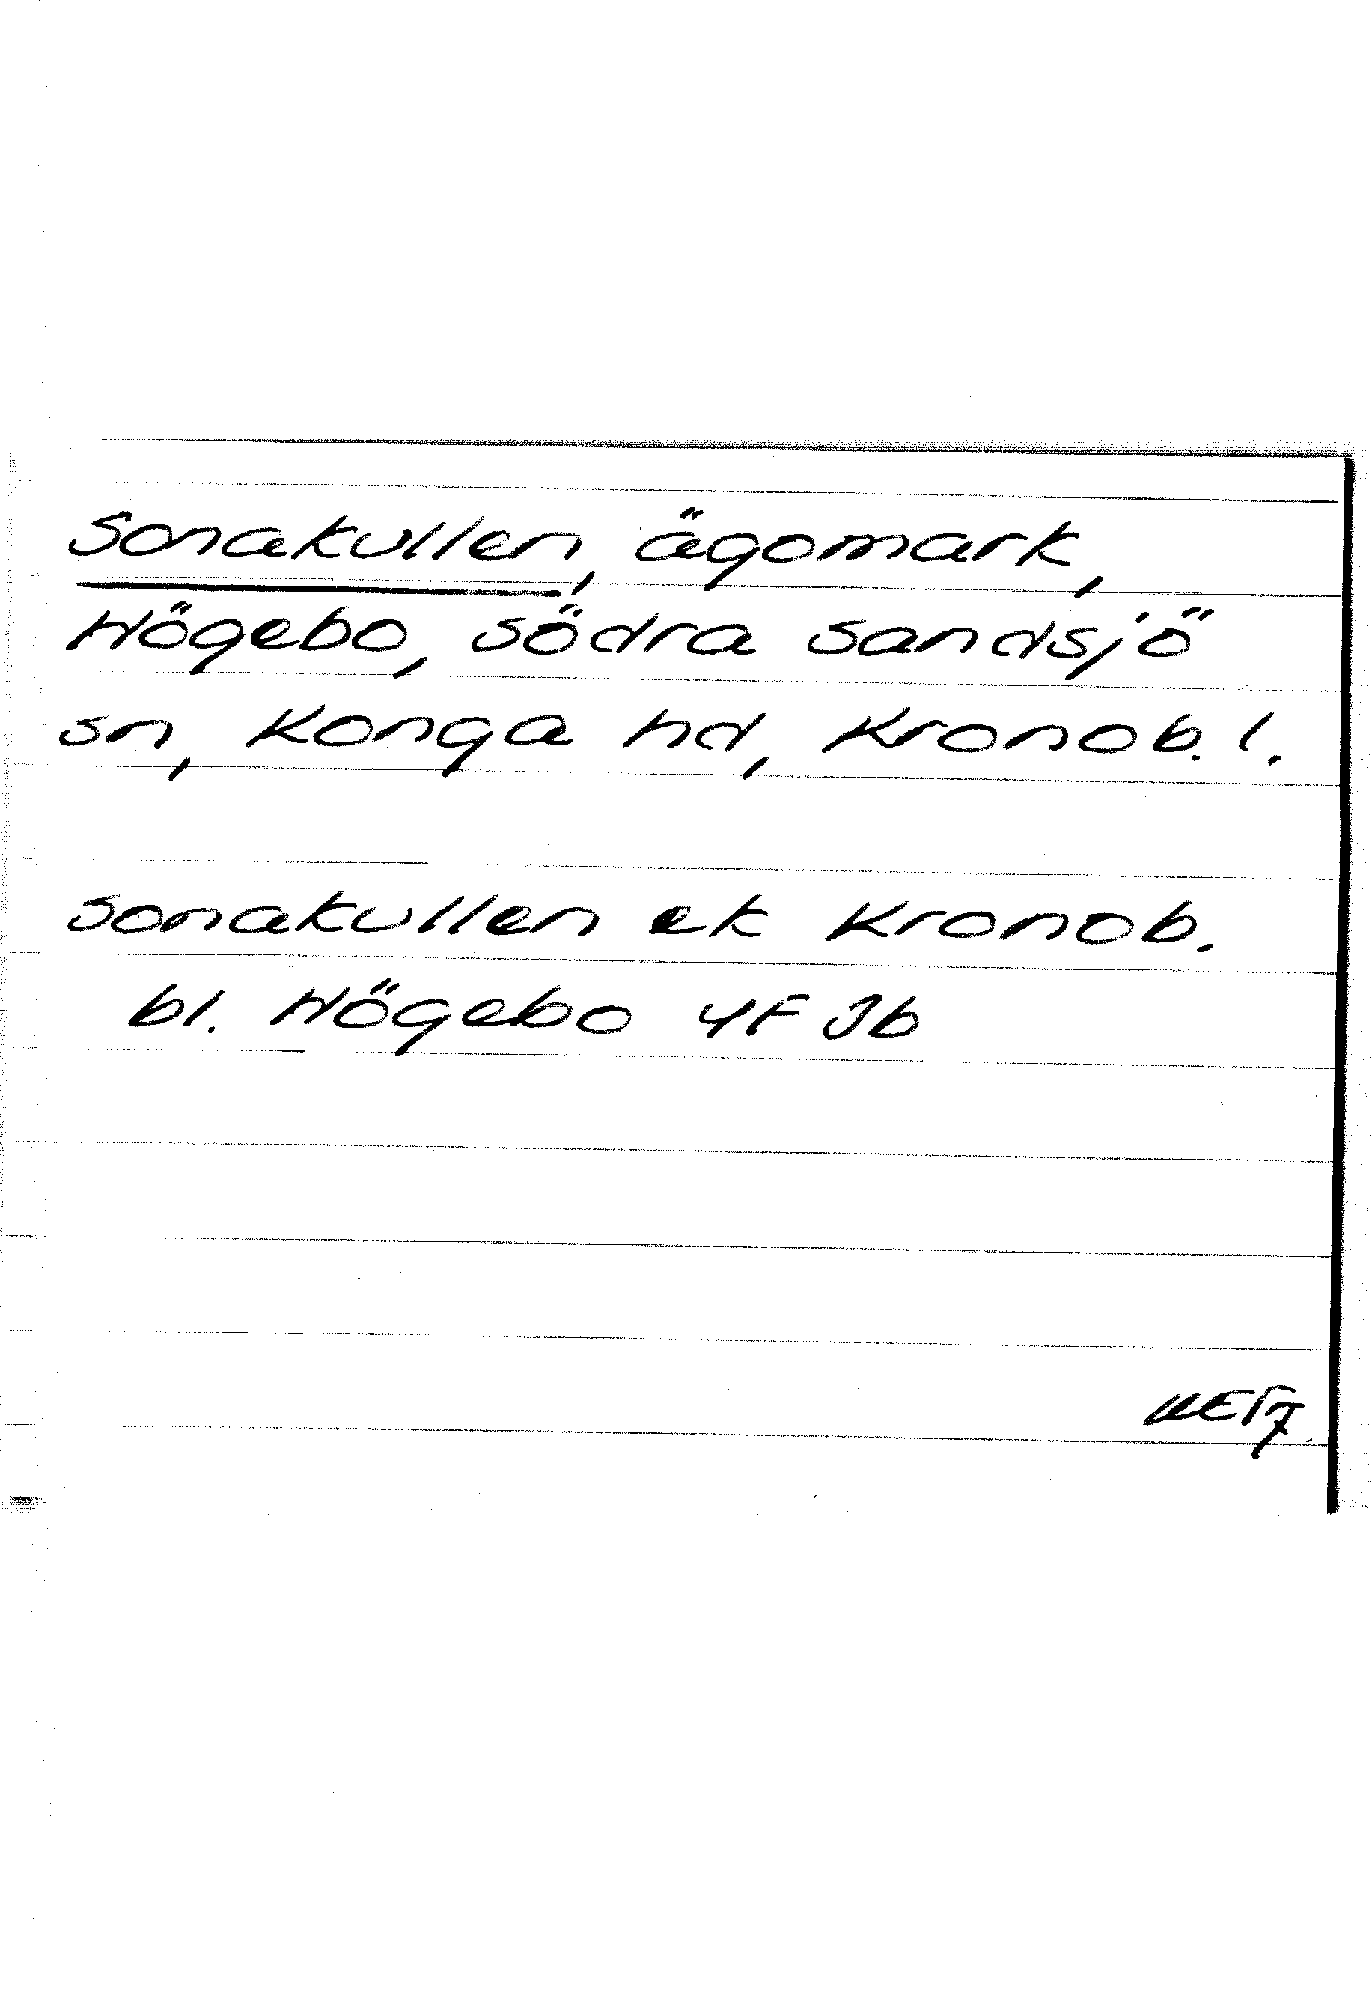 Sonakullen, ägomark,
Högebo, Södra Sandsjö
sn, Konga hd, Kronob. l.
Sonakullen ek Kronob.
bl. Högebo 4F 3b